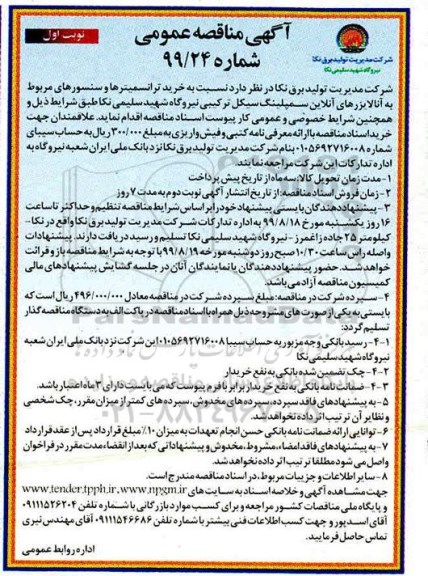 نوبت اول
آگهی مناقصه عمومی
شماره ۹۹/۲۴
شرکت مدیریت تولید برق نکا
نیروگاه شهید سلیمی نکا
شرکت مدیریت تولید برق نکا در نظر دارد نسبت به خرید ترانسمیترها و سنسورهای مربوط
به آنالایزرهای آنلاین سمپلینگ سیکل ترکیبی نیروگاه شهید سلیمی نکا طبق شرایط ذیل و
همچنین شرایط خصوصی و عمومی کار پیوست اسناد مناقصه اقدام نماید. علاقمندان جهت
خرید اسناد مناقصه با ارائه معرفی نامه کتبی و فیش واریزی به مبلغ ۳۰۰/۰۰۰ ریال به حساب سیبای
شماره ۰۱۰۵۶۹۲۷۱۶۰۰۸ بنام شرکت مدیریت تولید برق نکا نزد بانک ملی ایران شعبه نیروگاه به
اداره تدارکات این شرکت مراجعه نمایند.
۱- مدت زمان تحویل کالا: سه ماه از تاریخ پیش پرداخت
۲- زمان فروش اسناد مناقصه: از تاریخ انتشار آگهی نوبت دوم به مدت ۷ روز
۳- پیشنهاد دهندگان بایستی پیشنهاد خود را بر اساس شرایط مناقصه تنظیم و حداکثر تا ساعت
۱۶ روز یکشنبه مورخ ۹۹/۸/۱۸ به اداره تدارکات شرکت مدیریت تولید برق نکا واقع در نکا-
کیلومتر ۲۵ جاده زاغمرز - نیروگاه شهید سلیمی نکا تسلیم و رسید دریافت دارند. پیشنهادات
واصله راس ساعت ۱۰/۳۰ صبح روز دوشنبه مورخه ۹۹/۸/۱۹ با توجه به شرایط مناقصه باز و قرائت
خواهد شد. حضور پیشنهاد دهندگان یا نمایندگان آنان در جلسه گشایش پیشنهادهای مالی
کمیسیون مناقصه آزاد می باشد.
۴- سپرده شرکت در مناقصه: مبلغ سپرده شرکت در مناقصه معادل ۴۹۶/۰۰۰/۰۰۰ ریال است که
بایستی به یکی از صورت های مشروحه ذیل همراه با اسناد مناقصه در پاکت الف به دستگاه مناقصه گذار
تسلیم گردد:
۴-۱- رسید بانکی وجه مزبور به حساب سیبا ۰۱۰۵۶۹۲۷۱۶۰۰۸ این شرکت نزد بانک ملی ایران
نیروگاه شهید سلیمی نکا
۴-۲- چک تضمین شده بانکی به نفع خریدار
۴-۳- ضمانت نامه بانکی به نفع خریدار برابر با فرم پیوست که می بایست دارای ۳ ماه اعتبار باشد.
۵- به پیشنهادهای فاقد سپرده، سپرده های مخدوش، سپرده های کمتر از میزان مقرر، چک شخصی
و نظایر آن ترتیب اثر داده نخواهد شد.
۶- توانایی ارائه ضمانت نامه بانکی حسن انجام تعهدات به میزان ۱۰٪ مبلغ قرارداد پس از عقد قرارداد
۷- به پیشنهادهای فاقد امضاء، مشروط، مخدوش و پیشنهاداتی که بعد از انقضاء مدت مقرر در فراخوان
واصل می شود مطلقا ترتیب اثر داده نخواهد شد.
۸- سایر اطلاعات و جزییات مربوط، در اسناد مناقصه مندرج است.
جهت مشاهده آگهی و خلاصه اسناد به سایت های www.tender.tpph.ir، www.npgm.ir
و پایگاه ملی مناقصات کشور مراجعه و برای کسب موارد بازرگانی با شماره تلفن ۰۹۱۱۱۵۲۶۲۰۴
آقای اسدپور و جهت کسب اطلاعات فنی بیشتر با شماره تلفن ۰۹۱۱۱۵۴۶۶۸۶ آقای مهندس نیری
تماس حاصل فرمایید.
اداره روابط عمومی